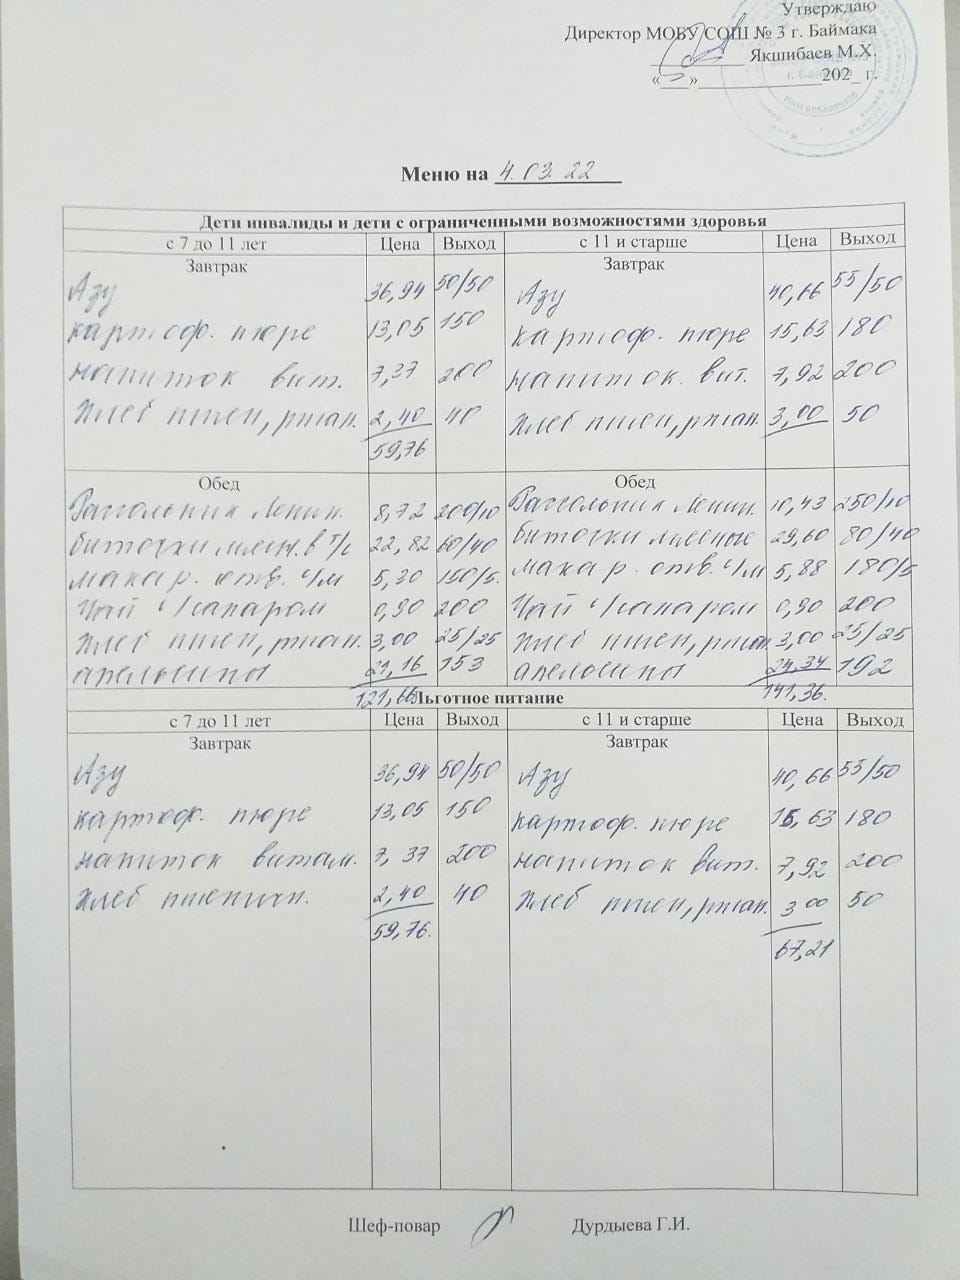 Утверждаю
Директор МОБУ СОШ № 3 г. Баймака
Якшибаев М.Х.
«___»______________202_ г.
Меню на 4.03.22
Дети инвалиды и дети с ограниченными возможностями здоровья
с 7 до 11 лет Цена Выход с 11 и старше Цена Выход
Завтрак Завтрак
Азу 36,94 50/50 Азу 40,66 55/50
картоф. пюре 13,05 150 картоф. пюре 15,63 180
напиток вит. 7,37 200 напиток вит. 7,92 200
Хлеб пшен, ржан. 2,40 40 Хлеб пшен, ржан. 3,00 50
59,76
Обед Обед
Рассольник Ленин. 8,72 200/10 Рассольник Ленин. 10,43 250/10
биточки мясн. в т/с 22,82 60/40 биточки мясные 29,60 80/40
макар. отв. с/м 5,30 150/5. макар. отв. с/м 5,88 180/5
Чай с/сахаром 0,90 200 Чай с/сахаром 0,90 200
Хлеб пшен, ржан. 3,00 25/25 Хлеб пшен, ржан. 3,00 25/25
апельсины 21,16 153 апельсины 24,34 192
121,66 141,36.
Льготное питание
с 7 до 11 лет Цена Выход с 11 и старше Цена Выход
Завтрак Завтрак
Азу 36,94 50/50 Азу 40,66 55/50
картоф. пюре 13,05 150 картоф. пюре 15,63 180
напиток витам. 7,37 200 напиток вит. 7,92 200
Хлеб пшеничн. 2,40 40 Хлеб пшен, ржан. 3 00 50
59,76. 67,21
Шеф-повар Дурдыева Г.И.